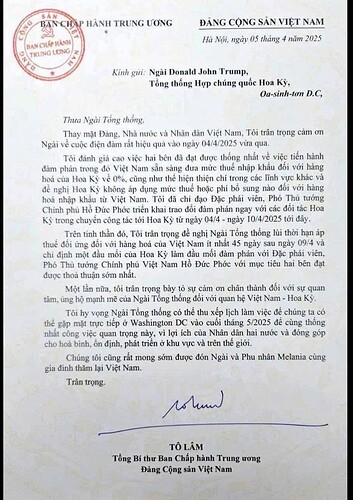 BAN CHẤP HÀNH TRUNG ƯƠNG
ĐẢNG CỘNG SẢN VIỆT NAM
BAN CHẤP HÀNH
TRUNG ƯƠNG
Hà Nội, ngày 05 tháng 4 năm 2025
Kính gửi: Ngài Donald John Trump,
Tổng thống Hợp chúng quốc Hoa Kỳ,
Oa-sinh-tơn D.C,
Thưa Ngài Tổng thống,
Thay mặt Đảng, Nhà nước và Nhân dân Việt Nam, Tôi trân trọng cảm ơn
Ngài về cuộc điện đàm rất hiệu quả vào ngày 04/4/2025 vừa qua.
Tôi đánh giá cao việc hai bên đã đạt được thống nhất về việc tiến hành
đàm phán trong đó Việt Nam sẵn sàng đưa mức thuế nhập khẩu đối với hàng
hoá của Hoa Kỳ về 0%, cũng như thể hiện thiện chí trong các lĩnh vực khác và
đề nghị Hoa Kỳ không áp dụng mức thuế hoặc phí bổ sung nào đối với hàng
hoá nhập khẩu từ Việt Nam. Tôi đã chỉ đạo Đặc phái viên, Phó Thủ tướng
Chính phủ Hồ Đức Phớc triển khai trao đổi đàm phán ngay với các đối tác Hoa
Kỳ trong chuyến công tác tới Hoa Kỳ từ ngày 04/4 - ngày 10/4/2025 tới đây.
Trên tinh thần đó, Tôi trân trọng đề nghị Ngài Tổng thống lùi thời hạn áp
thuế đối ứng đối với hàng hoá của Việt Nam ít nhất 45 ngày sau ngày 09/4 và
chỉ định một đầu mối của Hoa Kỳ làm đầu mối đàm phán với Đặc phái viên,
Phó Thủ tướng Chính phủ Việt Nam Hồ Đức Phớc với mục tiêu hai bên đạt
được thoả thuận sớm nhất.
Một lần nữa, tôi trân trọng bày tỏ sự cảm ơn chân thành đối với sự quan
tâm, ủng hộ mạnh mẽ của Ngài Tổng thống đối với quan hệ Việt Nam - Hoa Kỳ.
Tôi hy vọng Ngài Tổng thống có thể thu xếp lịch làm việc để chúng ta có
thể gặp mặt trực tiếp ở Washington DC vào cuối tháng 5/2025 để cùng thống
nhất công việc quan trọng này, vì lợi ích của Nhân dân hai nước và đóng góp
cho hoà bình, ổn định, phát triển ở khu vực và trên thế giới.
Chúng tôi cũng rất mong sớm được đón Ngài và Phu nhân Melania cùng
gia đình thăm lại Việt Nam.
Trân trọng.
TÔ LÂM
Tổng Bí thư Ban Chấp hành Trung ương
Đảng Cộng sản Việt Nam